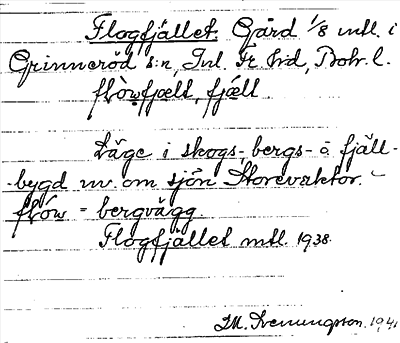 Flogfjället. Gård 1/8 mtl. i
Grinneröd s:n, Inl. Fr. hd, Boh. l.
flòwfjælt, fjǽll
Läge i skogs-, bergs- o fjäll-
-bygd nv. om sjön Storevaktor.
flów = bergvägg
Flogfjället mtl. 1938.
M. Svenungson. 1941